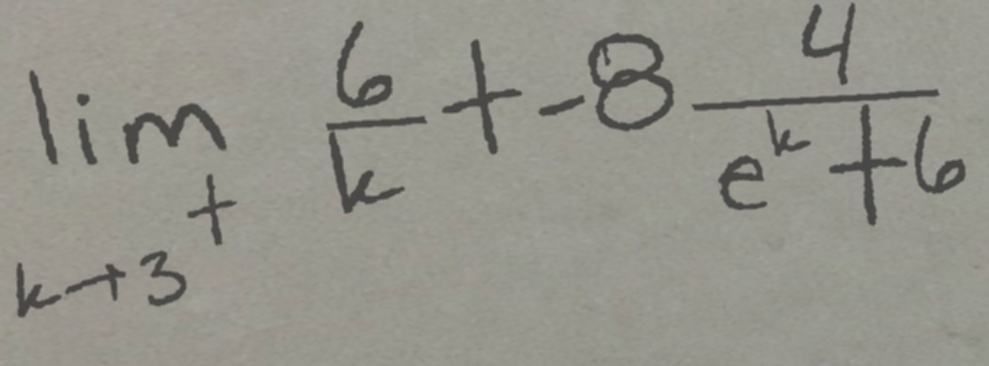 \lim_{k \to 3^+} \frac{6}{k} + -8 \frac{4}{e^k + 6}